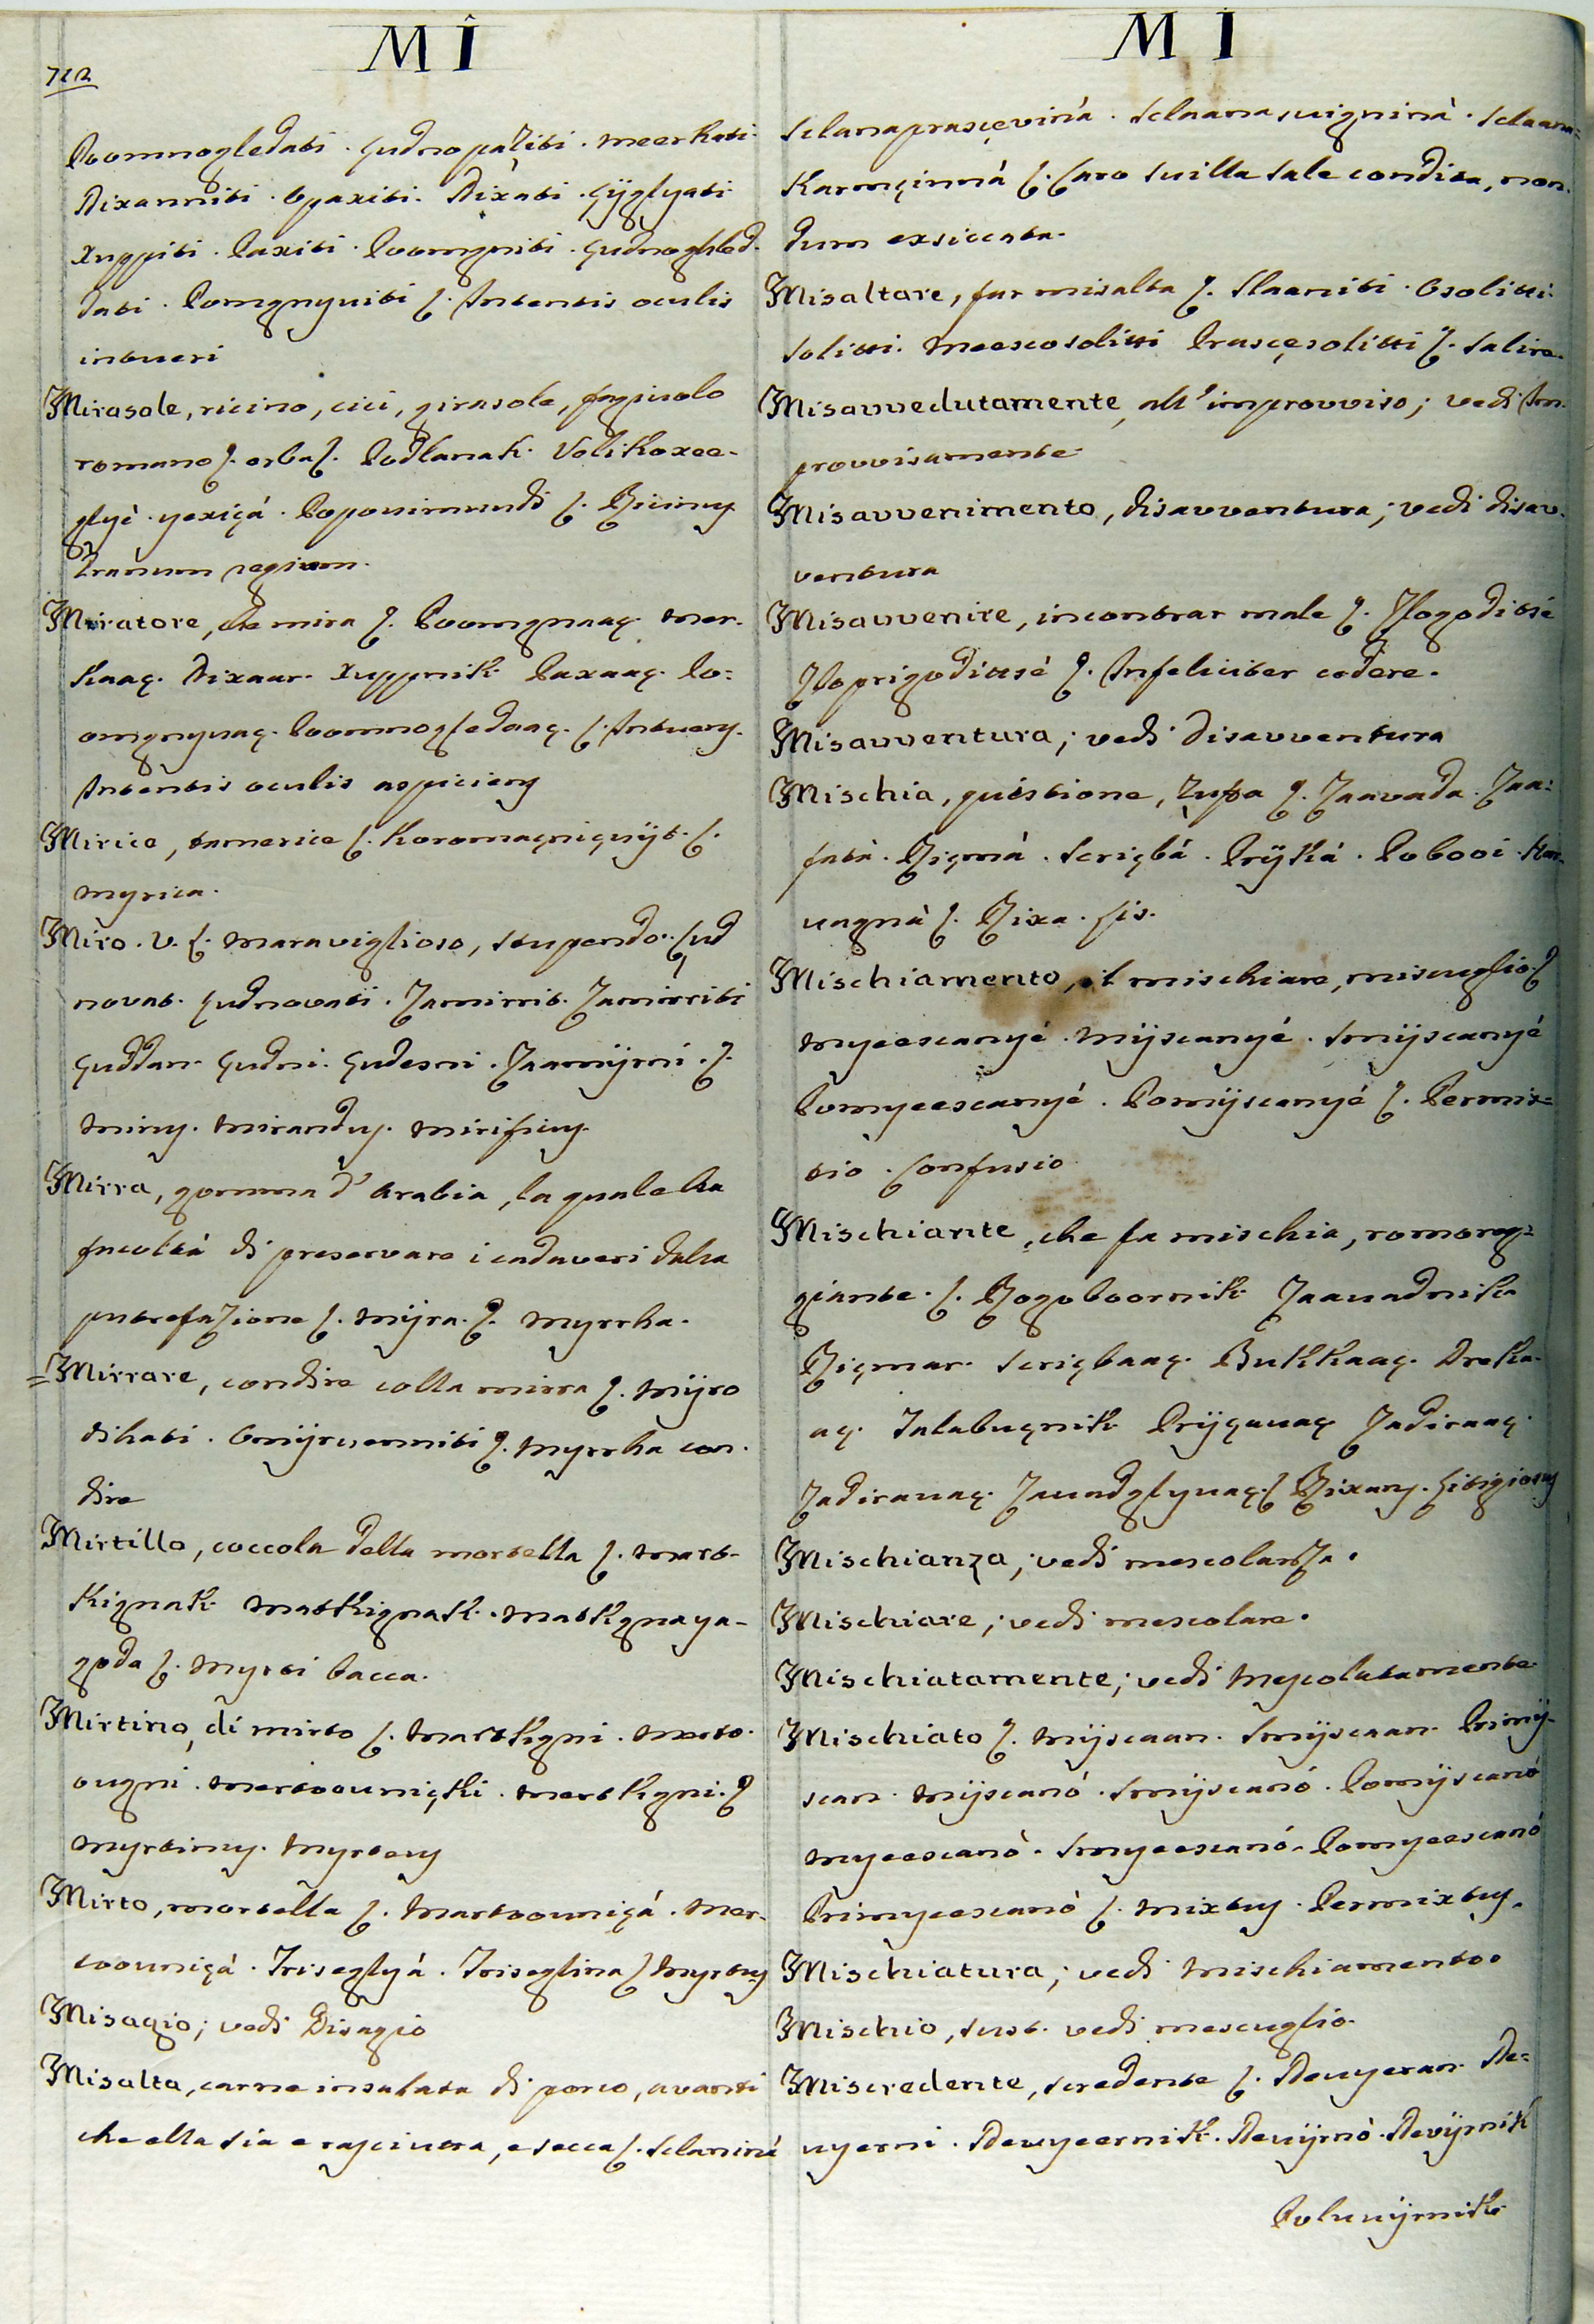 MÎ
712
Poomnogledati. çudnopáziti. Meerkati.
Dixanniti. Opaxiti. Dixati. Çÿglyati
Xuppiti. Paxiti. Poomgniti. Çudnogled-
dati. Pomgnyuiti ſ. Intentis oculis
intueri
Mirasole, ricino, cici, girasole, fagiuolo
romano ſ. erba ſ. Podlanak. Volikoxee-
glyè. yexiçá. Popouimundi ſ. Ricinus
Granum regium.
Miratore, che mira ſ. Poomgnaaç. Mer-
kaaç. Dixaar. Xuppnik. Paxaaç. Po=
omgnyuaç. Poomnogledaaç. ſ. Intuens.
Intentis oculis aspiciens
Mirice, tamerice ſ. Koromaçniçvÿt. ſ.
Myrica.
Miro. V. ſ. maraviglioso, stupendo. Çud
novat. Çudnovati. Zamirrit. Zamirriti
Çuddan. Çudni. Çudesni. Zaamÿrni. ſ.
Mirus. Mirandus. Mirificus.
Mirra, gomma d'Arabia, la quale ha
facoltá di preservare i cadaveri dalla
putrefazione ſ. Mÿra. ſ. Myrrha.
=Mirrare, condire colla mirra ſ. Mÿro
dihati. Omÿrisanniti ſ. Myrrha con-
dire
Mirtillo, coccola della mortella ſ. Mart-
kignak. Matkignak. Matkgnaya-
goda ſ. Myrti bacca.
Mirtino, di mirto ſ. Martkgni. Merto-
ougni. Mertoouniçki. Mertkgni. ſ
Myrtinus. Myrteus
Mirto, mortella ſ. Martoouniçá. Mer-
toouniçá. Triseglyá. Triseglina ſ Myrtus
Misagio; vedi Disagio
Misalta, carne insalata di porco, avanti
che ella sia rasciutta, e secca ſ. Sclaniná
MI
Sclanaprasçeviná. Sclaanasuigniná. Sclaana=
Karmçinná ſ. Caro suilla sale condita, non-
dum exsiccata.
Misaltare, far misalta ſ. Slaaniti. Osolitti.
Solitti. Meescosolitti. Prasçesolitti ſ. Salire.
Misavvedutamente, all'improvviso; vedi Im-
provvisamente
Misavvenimento, disavventura; vedi disav-
ventura
Misavvenire, incontrar male ſ. Zlogoditisé
Zloprigodittisé ſ. Infeliciter cedere.
Misavventura; vedi Disavventura
Mischia, quistione, Zuffa ſ. Zaavada. Zaa=
fatà. Riçmá. Scriçbá. Prÿká. Pobooi. Kar-
uagná ſ. Rixa. Lis.
Mischiamento, il mischiare, miscuglio ſ
Myeescanyé. Mÿscanyé. Smÿscanyé
Pomyeescanyé. Pomÿscanyé ſ. Permix=
tio. Confusio
Mischiante, che fa mischia, romoreg=
giante. ſ. Rogoboornik. Zaavadnik
Riçmar. Scriçbaaç. Bukkaaç. Dreka-
aç. Talabuçnik. Prÿçauaç. Zadiraaç.
Zadirauaç. Zauadglyuaç. ſ Rixans. Litigiosus
Mischianza; vedi mescolanza.
Mischiare; vedi mescolare.
Mischiatamente; vedi Mescolatamente
Mischiato ſ. Mÿscaan. Smÿscaan. Primÿ-
scan. Mÿscanó. Smÿscanó. Pomÿscanó
Myeescanò. Smyeescanó. Pomyeescanó
Primyeescanò ſ. Mixtus. Permixtus.
Mischiatura; vedi Mischiamento.
Mischio, sust. vedi mescuglio.
Miscredente, scredente ſ. Neuyeran. Ne=
uyerni. Neuyeernik. Neuÿrnò. Nevÿrnik
Poluuÿrnik